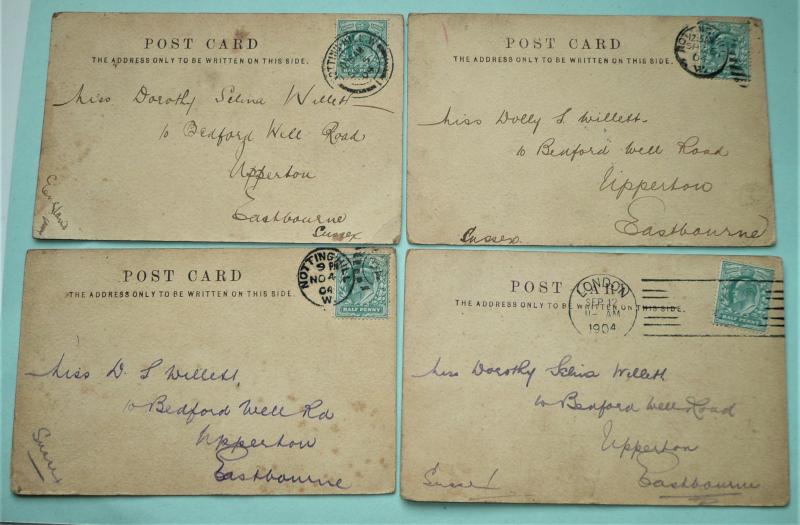 POST CARD
THE ADDRESS ONLY TO BE WRITTEN ON THIS SIDE.
HALF PENNY
Miss Dorothy Selina Willett
10 Bedford Well Road
Upperton
Eastbourne
Sussex
England
POST CARD
THE ADDRESS ONLY TO BE WRITTEN ON THIS SIDE.
W.
Miss Dolly S. Willett
10 Bedford Well Road
Upperton
Eastbourne
Sussex.
POST CARD
THE ADDRESS ONLY TO BE WRITTEN ON THIS SIDE.
NOTTING HILL
9 PM
NO 4
04
W.
HALF PENNY
Miss D. S Willett
10 Bedford Well Rd
Upperton
Eastbourne
Sussex
POST CARD
THE ADDRESS ONLY TO BE WRITTEN ON THIS SIDE.
LONDON
SEP 12
AM
1904
HALF PENNY
Miss Dorothy Selina Willett
10 Bedford Well Road
Upperton
Eastbourne
Sussex